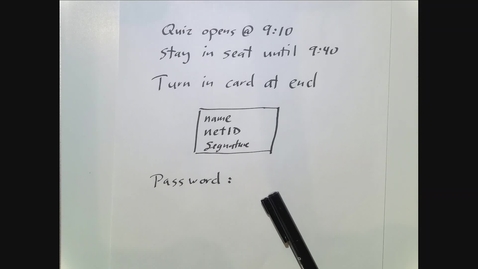 Quiz opens @ 9:10
Stay in seat until 9:40
Turn in card at end
name
netID
Signature
Password: